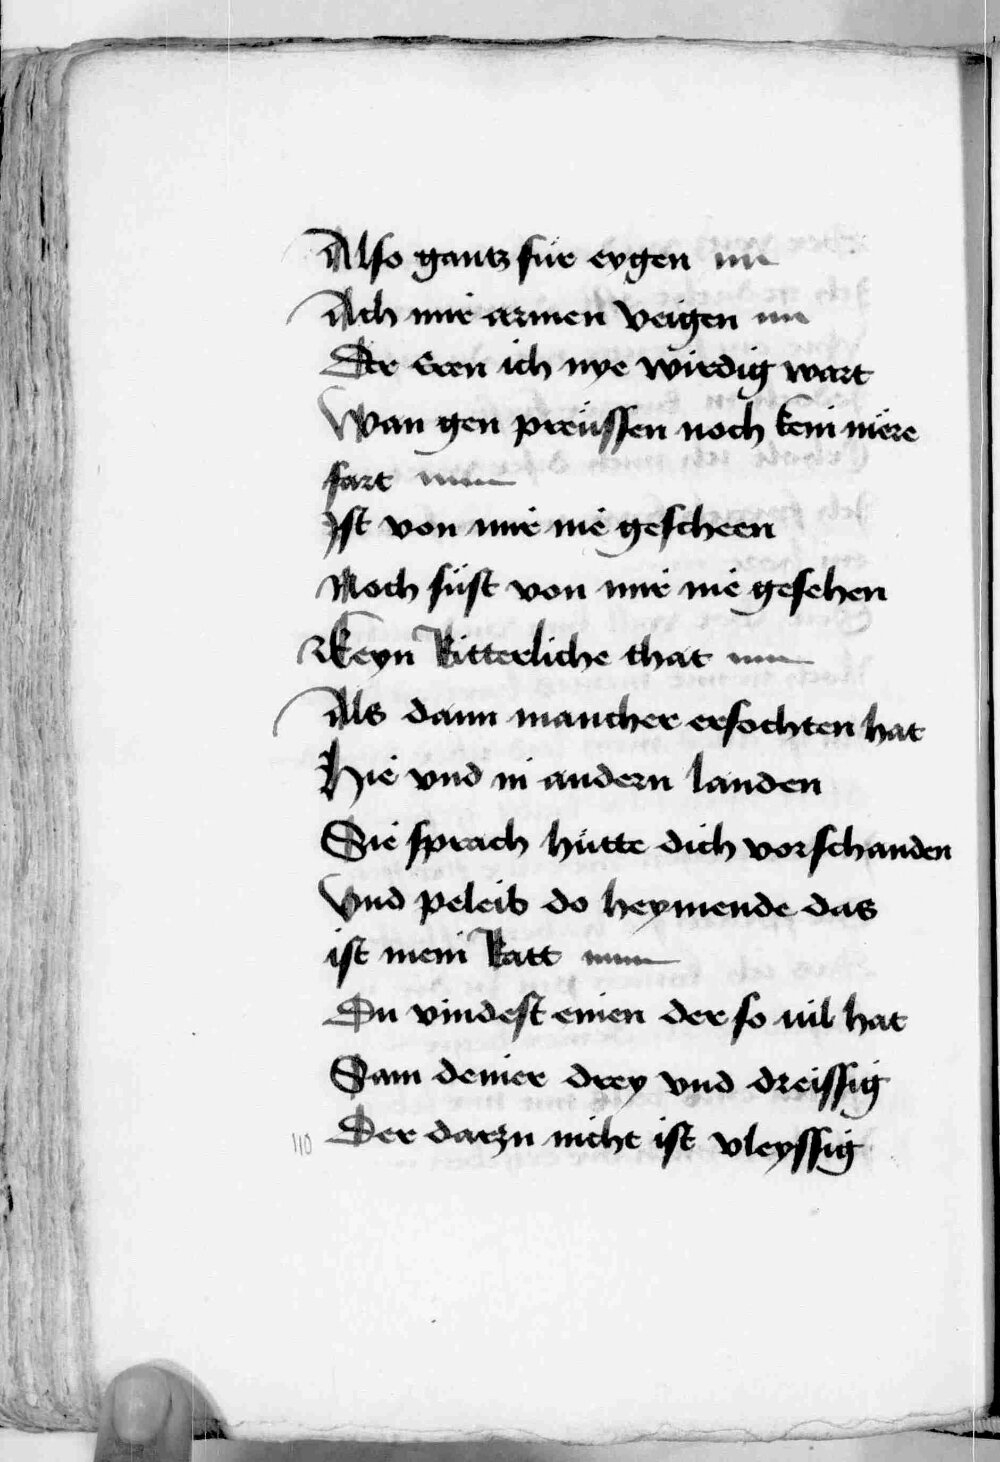 Also gantz für eygen
Ach mir armen veigen
Der Eren ich nye wirdig wart
Wan gen preüssen noch kein mëre
fart
Ist von mir nie gescheen
Noch süst von mir nie gesehen
Keyn Ritterliche that
Als dann mancher erfochten hat
Hie vnd in andern landen
Sie sprach hütte dich vor schanden
Vnd peleib do heymende das
ist mein Ratt
Du vindest einen der so uil hat
Sam deiner drey vnd dreissig
110 Der darzu nicht ist vleyssig